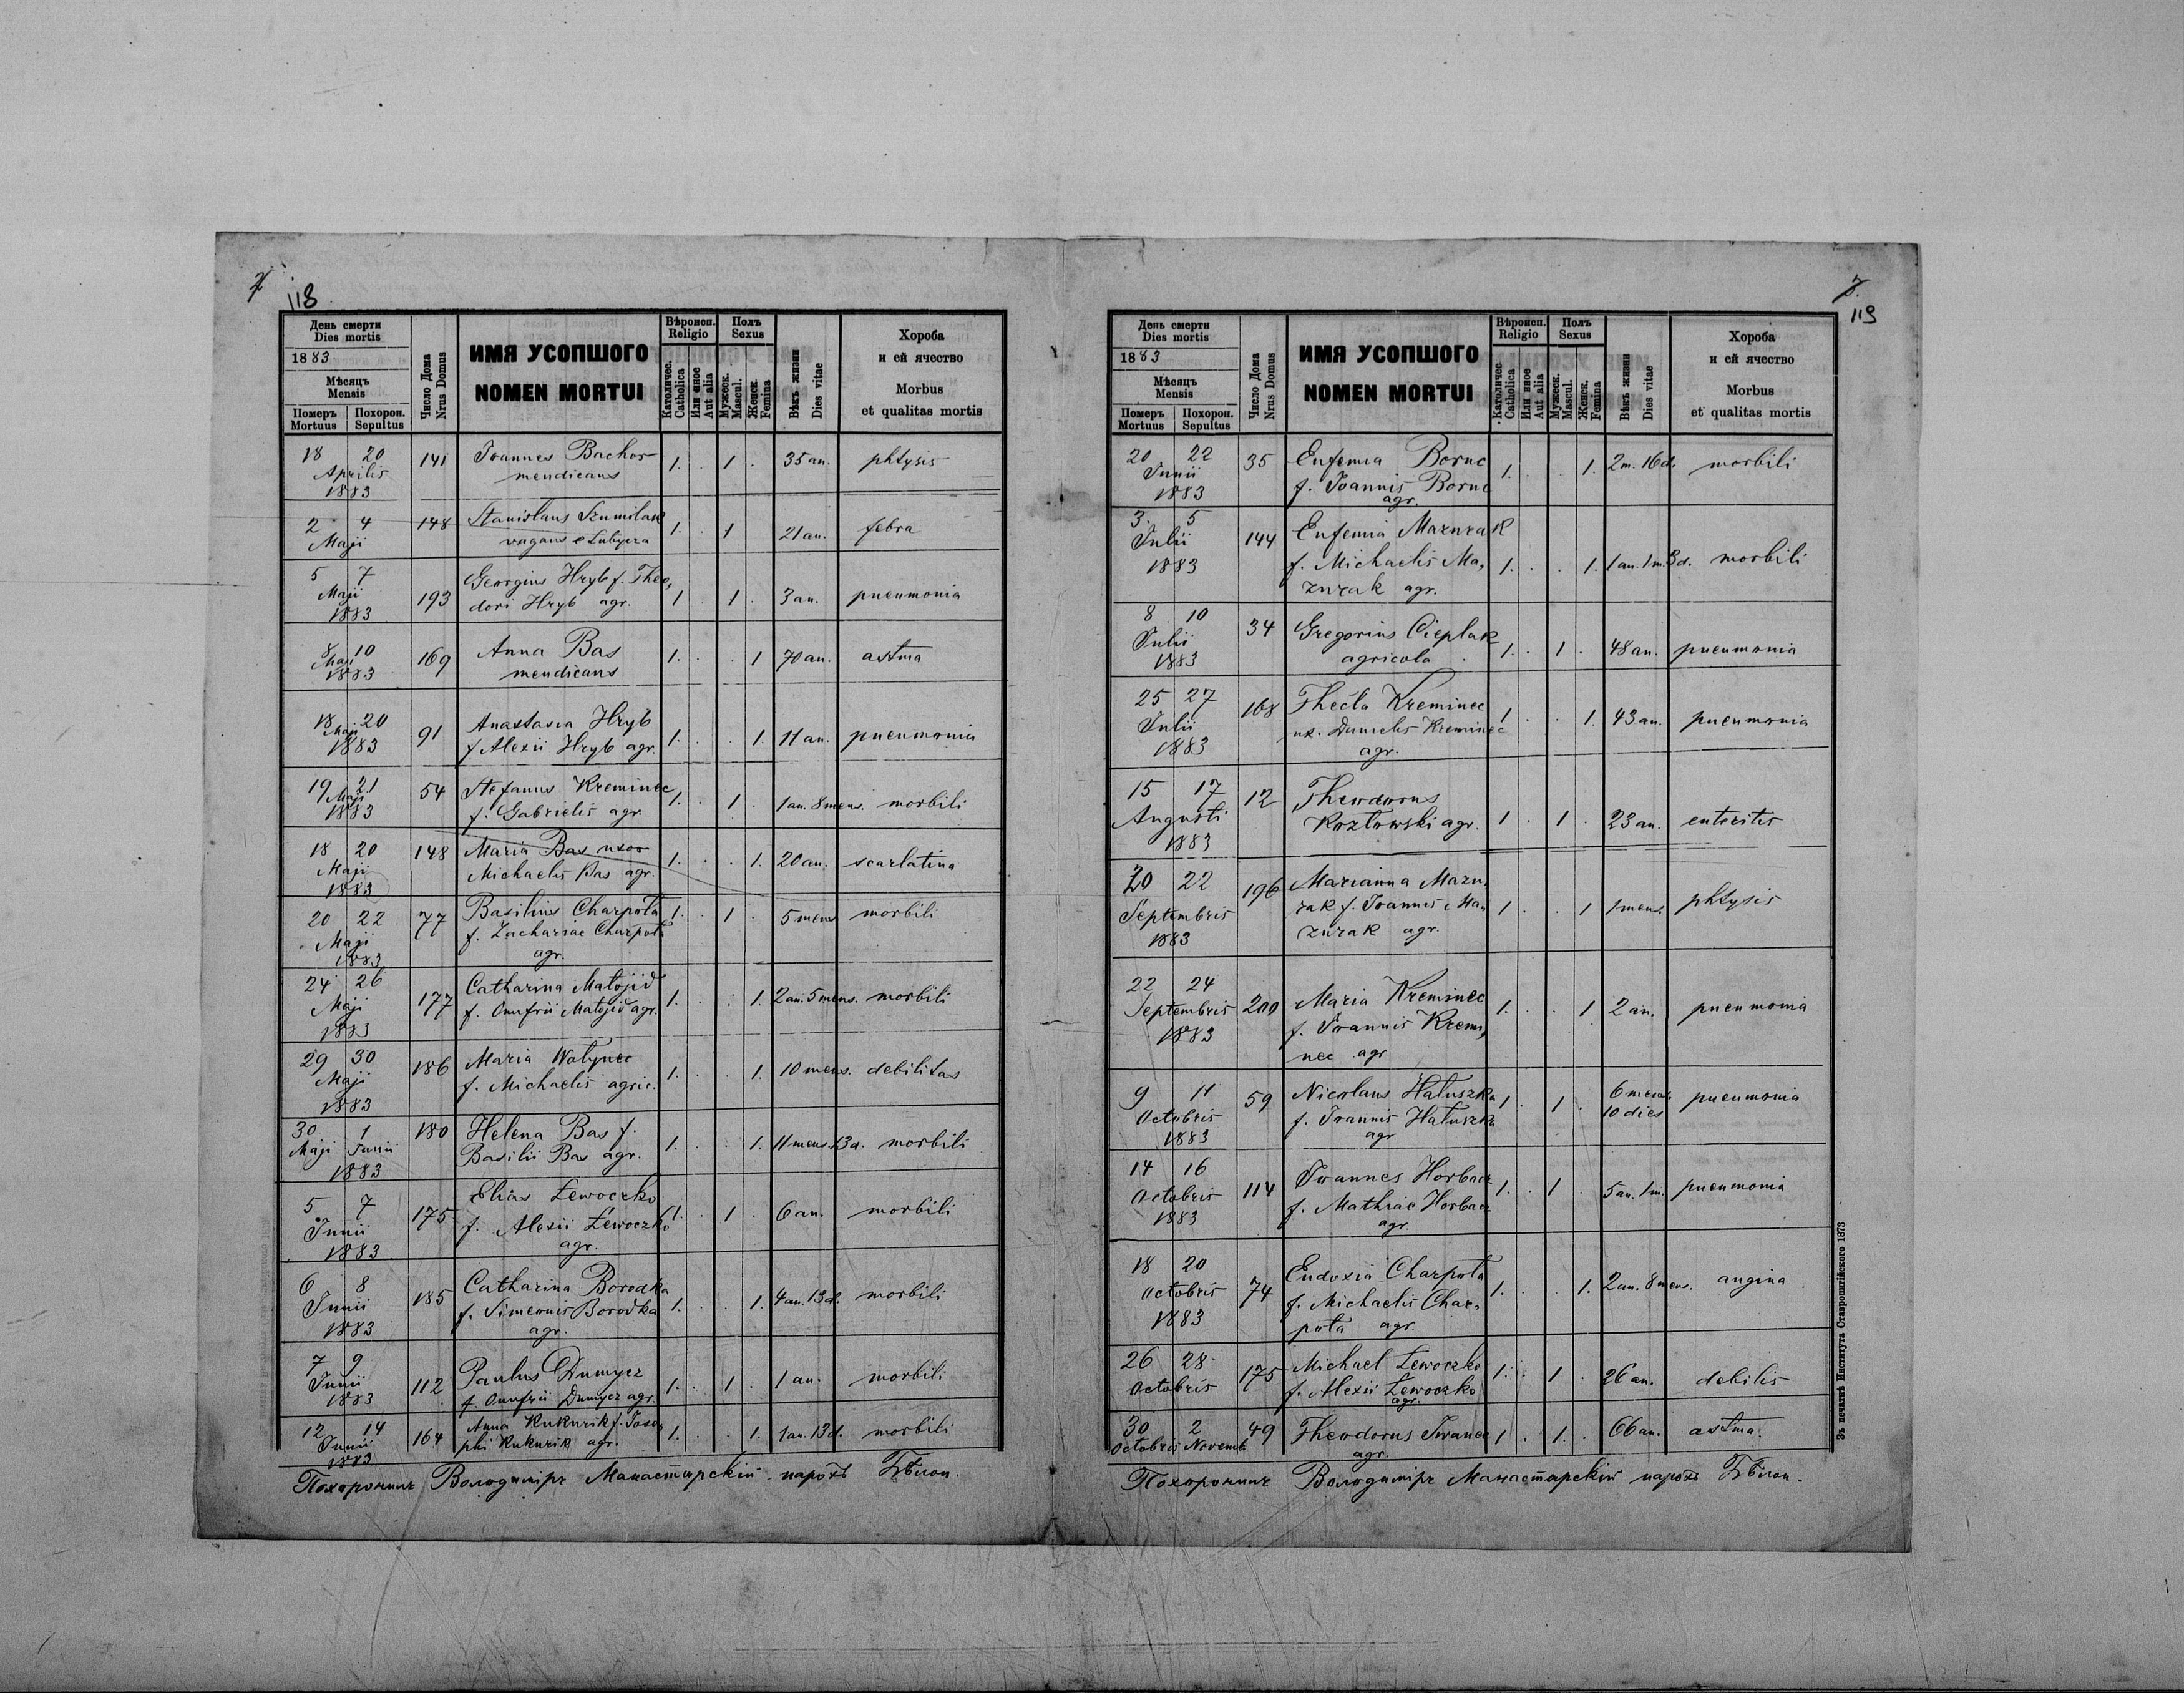 7
118
День смерти
Dies mortis
1883
Мѣсяцъ
Mensis
Померъ Похорон.
Mortuus Sepultus
Число Дома
Nrus Domus
ИМЯ УСОПШОГО
NOMEN MORTUI
Вѣроисп.
Religio
Католичес.
Catholica
Или иное
Aut alia
Полъ
Sexus
Мужеск.
Mascul.
Женск.
Femina
Вѣкъ жизни
Dies vitae
Хороба
и ей ячество
Morbus
et qualitas mortis
18 20 141 Joannes Bachor 1. . 1 . 35 an. phtysis
Aprilis mendicans
1883
2 4 148 Stanislaus Szumilak 1. . 1 21 an. febra
Maji vagans e
5 7 193 Georgius Hryb f. Theo,
Maji dori Hryb agr. 1 . 1 . 3 an. pneumonia
1883
8 10 169 Anna Bas 1. . . 1 70 an. astma
Maji mendicans
1883
18 20 91 Anastasia Hryb
Maji f Alexii Hryb agr. 1. . . 1. 11 an. pneumonia
1883
19 21 54 Stefanus Kreminec 1. . 1 . 1 an. 8 mens. morbili
Maji f. Gabrielis agr.
1883
18 20 148 Maria Bas uxor 1. . . 1. 20 an. scarlatina
Maji Michaelis Bas agr.
1883
20 22 77 Basilius Charpota 1. . 1 . 5 mens morbili
Maji f. Zachariae Charpota
1883 agr.
24 26 177 Catharina Matojid 1. . . 1. 2 an. 5 mens. morbili
Maji f. Onufrii Matojid agr.
1883
29 30 186 Maria Wołynec 1. . . 1. 10 mens. debilitas
Maji f. Michaelis agric.
1883
30 1 180 Helena Bas f. 1. . . 1. 11 mens. 13 d. morbili
Maji Junii Basilii Bas agr.
1883
5 7 175 Elias Lewoczko 1. . 1 . 6 an. morbili
Junii f. Alexii Lewoczko
1883 agr.
6 8 185 Catharina Borodka 1. . . 1. 4 an. 13 d. morbili
Junii f. Simeonis Borodka
1883 agr.
7 9 112 Paulus Dumycz 1. . 1 . 1 an. morbili
Junii f. Onufrii Dumycz agr.
1883
12 14 164 Anna Kukurik f. Jose, 1. . . 1. 1 an. 13 d. morbili
Junii phi Kukurik agr.
1883
Похоронилъ Володимиръ Манастырскій парохъ
7.
119
День смерти
Dies mortis
1883
Мѣсяцъ
Mensis
Померъ Похорон.
Mortuus Sepultus
Число Дома
Nrus Domus
ИМЯ УСОПШОГО
NOMEN MORTUI
Вѣроисп.
Religio
Католичес.
Catholica
Или иное
Aut alia
Полъ
Sexus
Мужеск.
Mascul.
Женск.
Femina
Вѣкъ жизни
Dies vitae
Хороба
и ей ячество
Morbus
et qualitas mortis
20 22 35 Eufemia Boruc 1. . . 1. 2 m. 16 d. morbili
Junii f. Joannis Boruc
1883 agr.
3 5 144 Eufemia Mazurak
Julii f. Michaelis Ma, 1. . . 1. 1 an. 1 m. 3 d. morbili
1883 zurak agr.
8 10 34 Gregorius Cieplak
Julii agricola 1. . 1 . 48 an. pneumonia
1883
25 27 168 Thecla Kreminec 1 . . 1. 43 an. pneumonia
Julii ux. Danielis Kreminec
1883 agr.
15 17 12 Theodorus
Augusti Kozłowski agr. 1 . 1 . 23 an. enteritis
1883
20 22 196 Marianna Mazu,
Septembris rak f. Joannis Ma, 1 . . 1 1 mens. phtysis
1883 zurak agr.
22 24 200 Maria Kreminec 1. . . 1 2 an. pneumonia
Septembris f. Joannis Kremi,
1883 nec agr
9 11 59 Nicolaus Hałuszka 1 . 1 . 6 mens. pneumonia
Octobris f. Joannis Hałuszka 10 dies
1883 agr
14 16 114 Joannes Horbacz 1. . 1 . 5 an. 1 m. pneumonia
Octobris f. Mathiae Horbacz
1883 agr.
18 20 74 Eudoxia Charpota 1. . . 1. 2 an. 8 mens. angina
Octobris f. Michaelis Char,
1883 pota agr.
26 28 175 Michael Lewoczko 1. . 1 . 26 an. debilis
Octobris f. Alexii Lewoczko
agr.
30 2 49 Theodorus Iwanec 1 . 1. . 66 an. astma
Octobris Novemb. agr.
Похоронилъ Володимиръ Манастырскій парохъ
Зъ печатнѣ Института Ставропигійского 1873